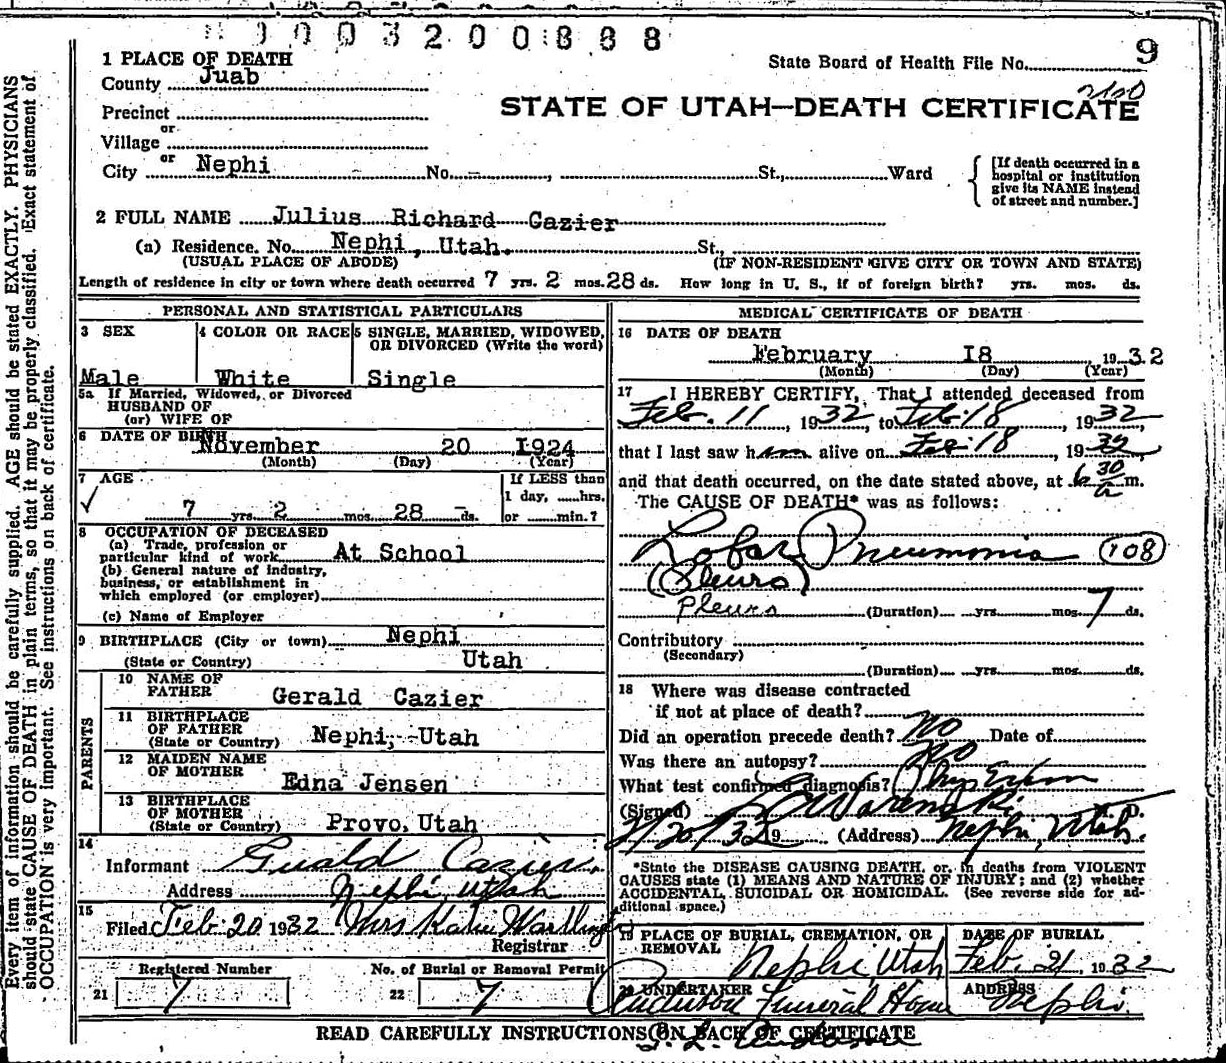 0003200888
9
State Board of Health File No.
STATE OF UTAH—DEATH CERTIFICATE
1 PLACE OF DEATH
County Juab
Precinct
or
Village
or
City Nephi No. - , St., Ward
[If death occurred in a
hospital or institution
give its NAME instead
of street and number.]
2 FULL NAME Julius Richard Cazier
(a) Residence. No. Nephi, Utah. St.,
(USUAL PLACE OF ABODE) (IF NON-RESIDENT GIVE CITY OR TOWN AND STATE)
Length of residence in city or town where death occurred 7 yrs. 2 mos. 28 ds. How long in U. S., if of foreign birth? yrs. mos. ds.
PERSONAL AND STATISTICAL PARTICULARS
3 SEX
Male
4 COLOR OR RACE
White
5 SINGLE, MARRIED, WIDOWED,
OR DIVORCED (Write the word)
Single
5a If Married, Widowed, or Divorced
HUSBAND OF
(or) WIFE OF
6 DATE OF BIRTH
November 20 1924
(Month) (Day) (Year)
7 AGE
7 yrs. 2 mos. 28 ds.
If LESS than
1 day, hrs.
or min.?
8 OCCUPATION OF DECEASED
(a) Trade, profession or
particular kind of work At School
(b) General nature of industry,
business, or establishment in
which employed (or employer)
(c) Name of Employer
9 BIRTHPLACE (City or town) Nephi
(State or Country) Utah
PARENTS
10 NAME OF
FATHER Gerald Cazier
11 BIRTHPLACE
OF FATHER
(State or Country) Nephi, Utah
12 MAIDEN NAME
OF MOTHER
Edna Jensen
13 BIRTHPLACE
OF MOTHER
(State or Country) Provo, Utah
14
Informant Gerald Cazier
Address Nephi Utah
15
Filed Feb 20 1932 Mrs Katie
Registrar
Registered Number
21 7
No. of Burial or Removal Permit
22 7
MEDICAL CERTIFICATE OF DEATH
16 DATE OF DEATH
February 18 1932
(Month) (Day) (Year)
17 I HEREBY CERTIFY, That I attended deceased from
Feb. 11, 1932, to Feb 18, 1932
that I last saw him alive on Feb 18, 1932,
and that death occurred, on the date stated above, at 6 30 a m.
The CAUSE OF DEATH* was as follows:
Lobar Pneumonia 108
(Pleuro)
Pleuro
(Duration) yrs. mos. 7 ds.
Contributory
(Secondary)
(Duration) yrs. mos. ds.
18 Where was disease contracted
if not at place of death?
Did an operation precede death? No Date of
Was there an autopsy? No
What test confirmed diagnosis? Phys
(Signed) M. D.
2/20/32 19 (Address) Nephi, Utah.
*State the DISEASE CAUSING DEATH, or, in deaths from VIOLENT
CAUSES state (1) MEANS AND NATURE OF INJURY; and (2) whether
ACCIDENTAL, SUICIDAL OR HOMICIDAL. (See reverse side for ad-
ditional space.)
19 PLACE OF BURIAL, CREMATION, OR
REMOVAL
Nephi Utah
DATE OF BURIAL
Feb. 21, 1932
20 UNDERTAKER
Anderson Funeral Home
ADDRESS
Nephi.
READ CAREFULLY INSTRUCTIONS ON BACK OF CERTIFICATE
Every item of information should be carefully supplied. AGE should be stated EXACTLY. PHYSICIANS
should state CAUSE OF DEATH in plain terms, so that it may be properly classified. Exact statement of
OCCUPATION is very important. See instructions on back of certificate.